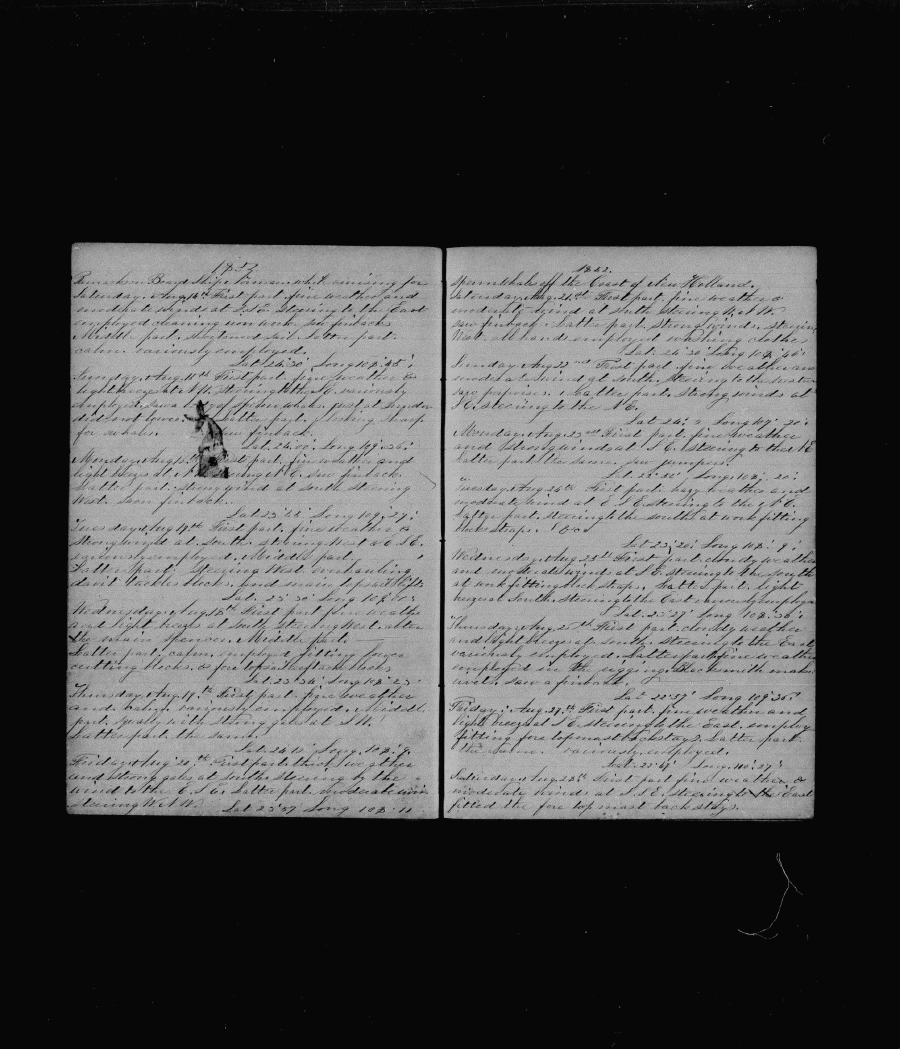 1852
Remarks on Board Ship whilst cruising for
Saturday Aug 14th First part fine weather and
moderate wind at S.S.E. Steering to the East
employed cleaning iron work. Saw finbacks
Middle part. Shortened sail. Latter part
calm. variously employed.
Lat 24 30 Long 109 45
Sunday Aug 15th First part. fine weather &
light breezes at Steering to the E. variously
employed. Saw a of sperm whales
did not lower. Latter part. looking sharp
for whales. finback.
Lat 24.00 Long 109
Monday Aug 16th First part fine weather and
light breezes at steering E. saw finback
Latter part. strong wind at South steering
West. Seen finback.
Lat 23 Long 109. 27
Tuesday Aug 17th First part. fine weather &
strong wind at South. steering West & E.S.E.
variously employed. Middle part,
Latter part. Steering West. overhauling
davit tackles blocks, and main topsail
Lat. 23 20 Long 109
Wednesday Aug 18th First part fine weather
and light breezes at South Steering West. alter
the main spencer. Middle part.
Latter part. calm, employed fitting lower
cutting blocks. & fore top
Lat. 23 34 Long 108 23
Thursday Aug. 19th First part. fine weather
and calm. variously employed. Middle
part. squally with strong gales at S.W.
Latter part the same.
Lat 24 Long. 108 9
Friday Aug 20th First part thick weather
and strong gales at South steering by the
wind to the E.S.E. Latter part. moderate wind
steering W.S.W.
Lat 23 57 Long 108 11
1852.
Spermwhale off the Coast of New Holland.
Saturday Aug. 21st First part. fine weather &
moderate wind at South steering W.S.W.
saw finback. Latter part. strong winds. steering
West. all hands employed washing clothes
Lat. 24 20 Long 108 46
Sunday Aug 22nd First part fine weather and
moderate wind at South. steering to the
Latter part. strong winds at
S.E. steering to the N.E.
Lat 24 2 Long 107 20
Monday Aug. 23rd First part. fine weather
and strong winds at S.E. steering to the N.E
Latter part the same. saw jumpers.
Lat 23 30 Long. 108 20
Tuesday Aug 24th First part. hazy weather and
moderate wind at E.S.E. steering to the
Latter part. steering to the South. at work fitting
block straps. &c.
Lat 23 20 Long 108 9
Wednesday Aug. 25th First part cloudy weather
and moderate winds at S.E. steering to the South
at work fitting block straps. Latter part. light
breezes South. steering to the East variously employed
Lat. 23 27 Long 109 36
Thursday Aug. 26th First part cloudy weather
and light breezes at South. steering to the East
variously employed. Latter part fine weather
employed in the rigging. Blacksmith making
rivets. saw a finback.
Lat 22 57 Long 109 36
Friday Aug 27th First part. fine weather and
light breezes at S.E. steering to the East. employed
fitting fore topmast backstays. Latter part
the same. variously employed.
Lat. 22 Long. 110 27
Saturday Aug 28th First part fine weather &
moderate winds at S.S.E. steering to the East
fitted the fore topmast backstays.